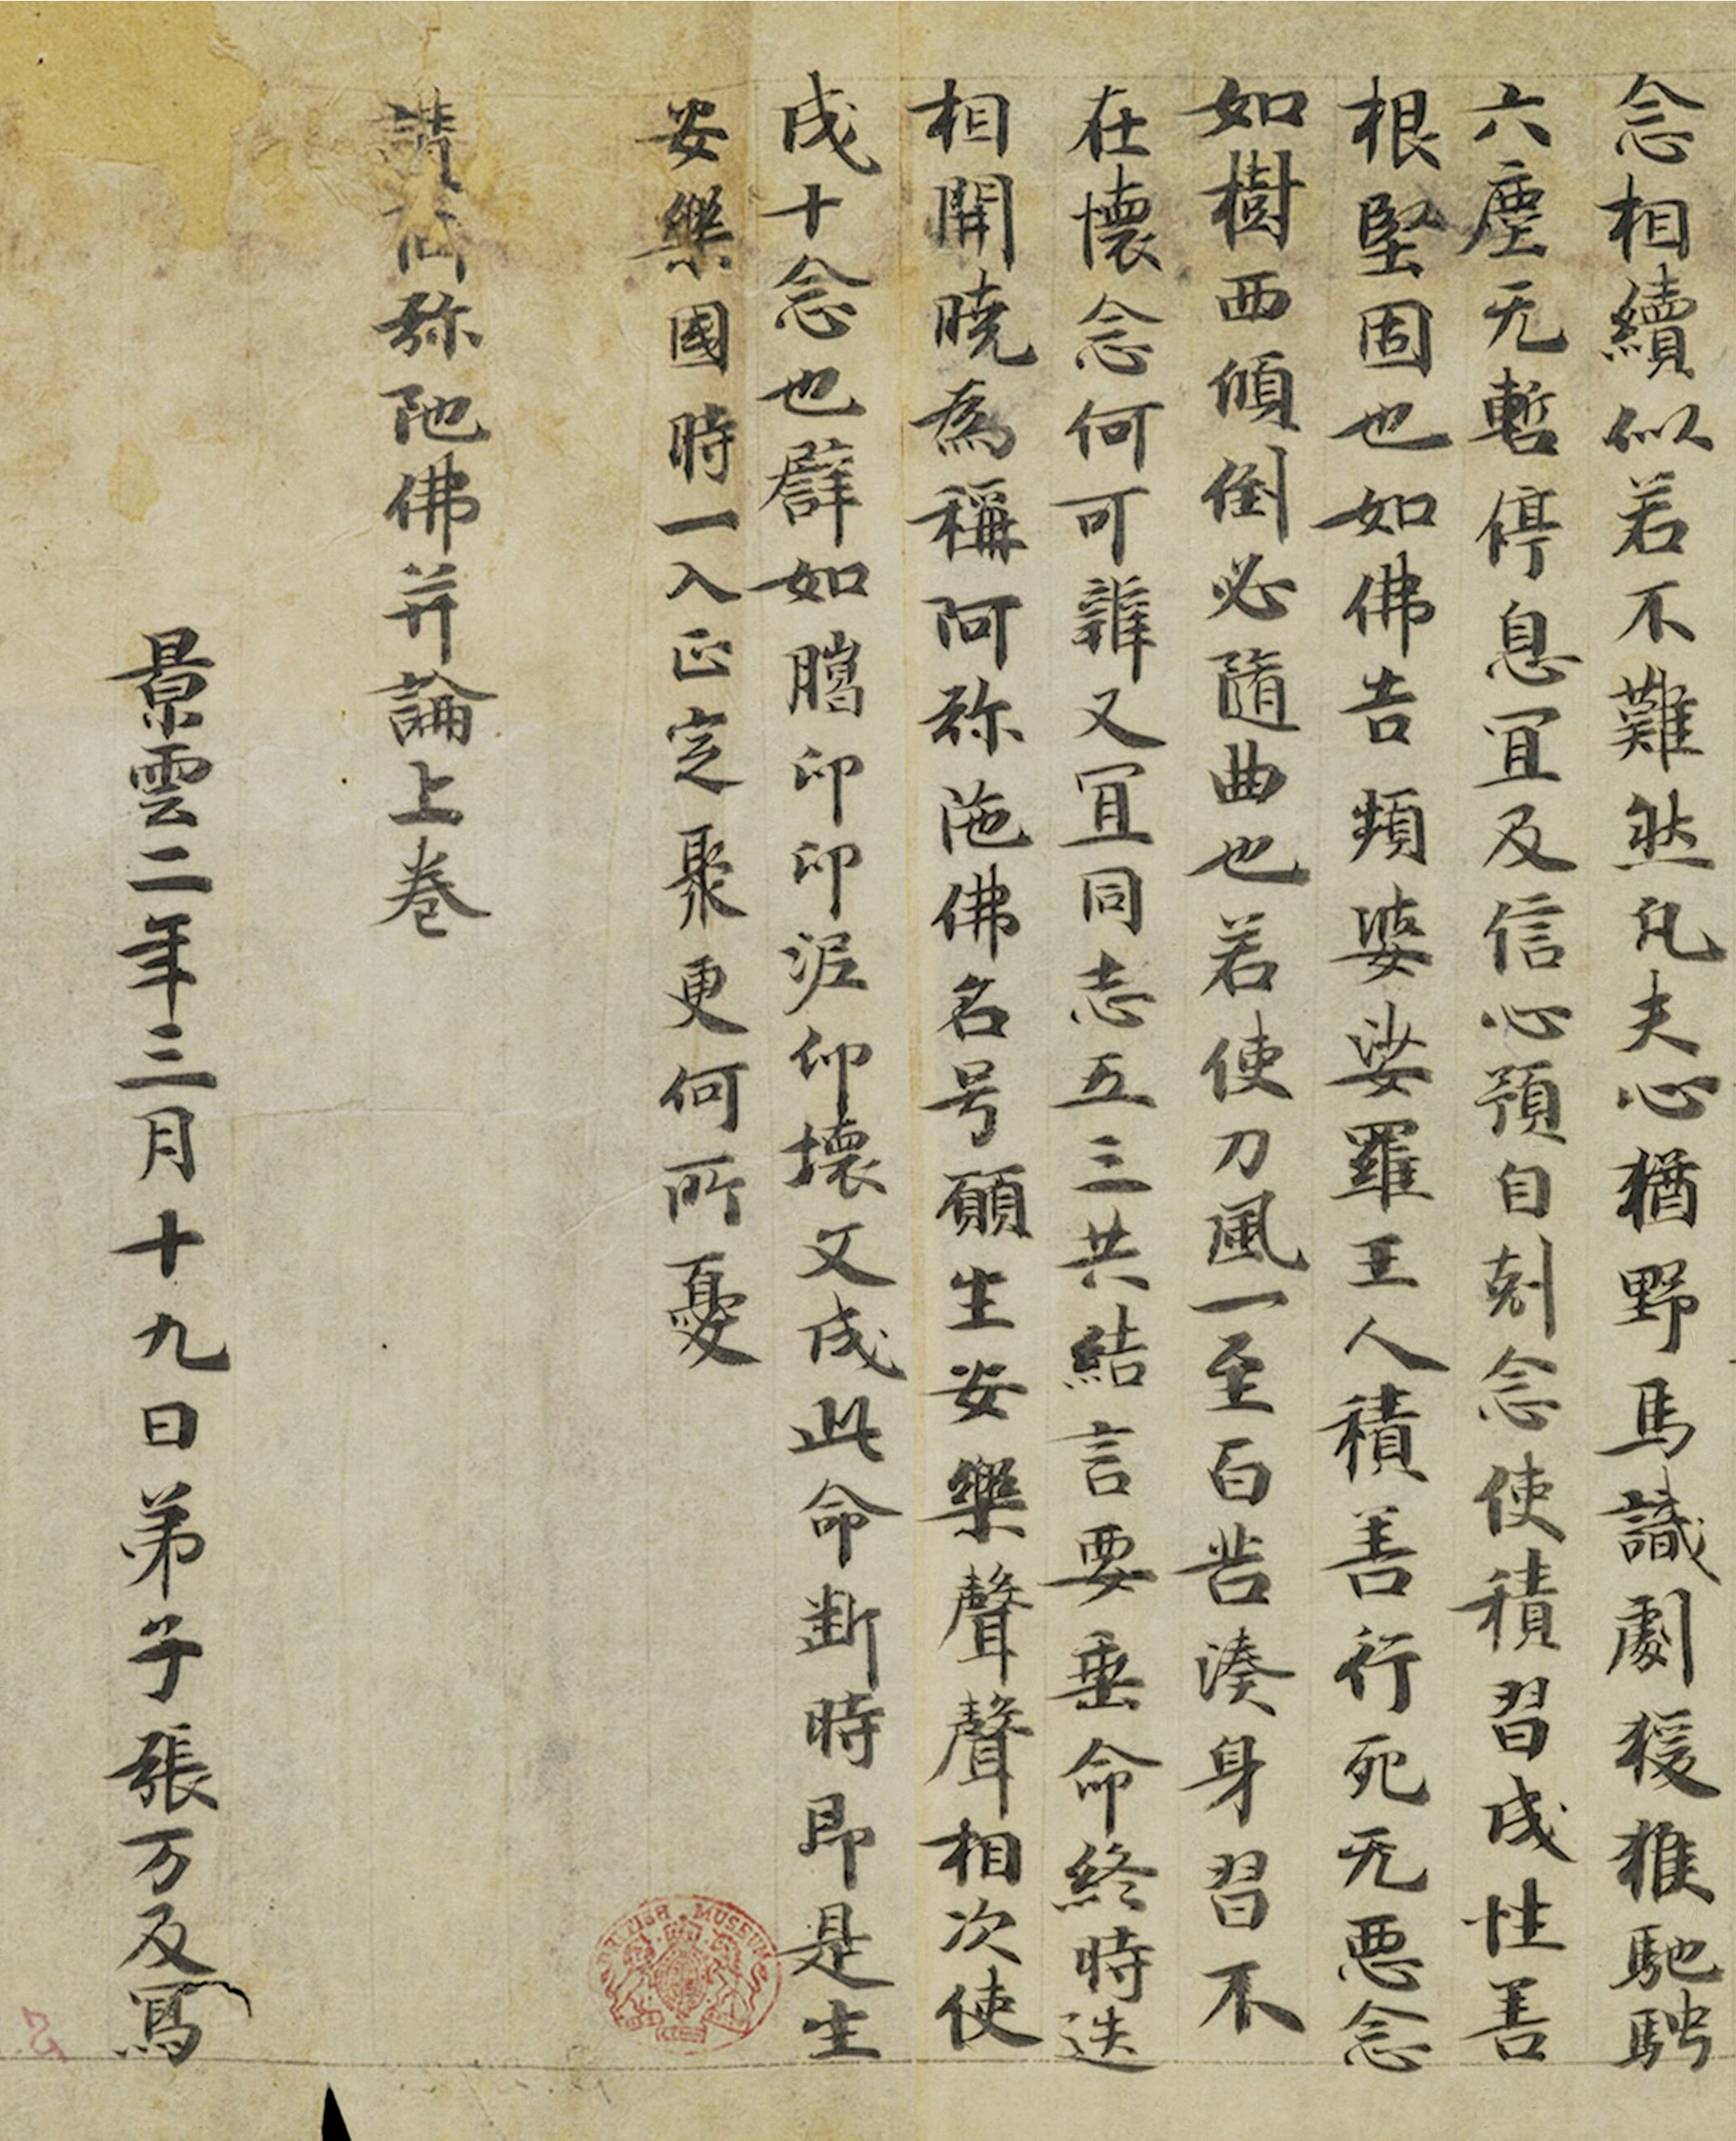 念相續似若不難然凡夫心猶野馬識劇猨猴馳騁
六塵无暫停息冝及信心預自剋念使積習成性善
根堅固也如佛告頻婆娑羅王人積善行死无惡念
如樹西傾倒必隨曲也若使刀風一至百苦湊身習不
在懷念何可辨又冝同志五三共結言要垂命終時迭
相開曉為稱阿弥陁佛名号願生安樂聲聲相次使
成十念也譬如臈印印泥印壞文成此命断時即是生
安樂國時一入正定聚更何所憂
讚弥陁佛并論上卷
景雲二年三月十九日弟子張万及寫
BRITISH MUSEUM